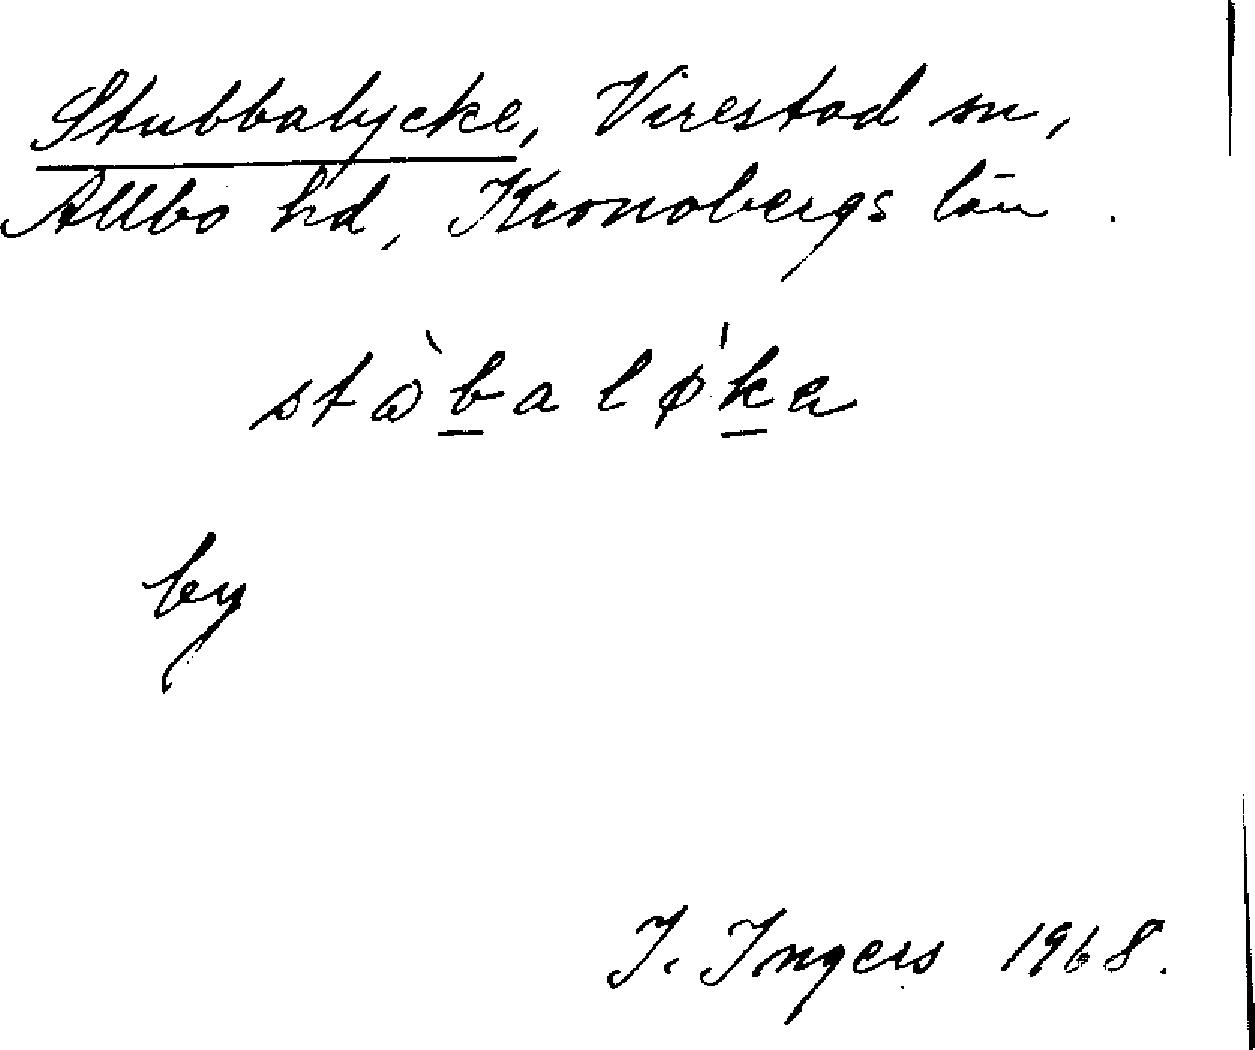 Stubbalycke, Virestad sn,
Allbo hd, Kronobergs län.
stòbaløka
by
I. Ingers 1968.